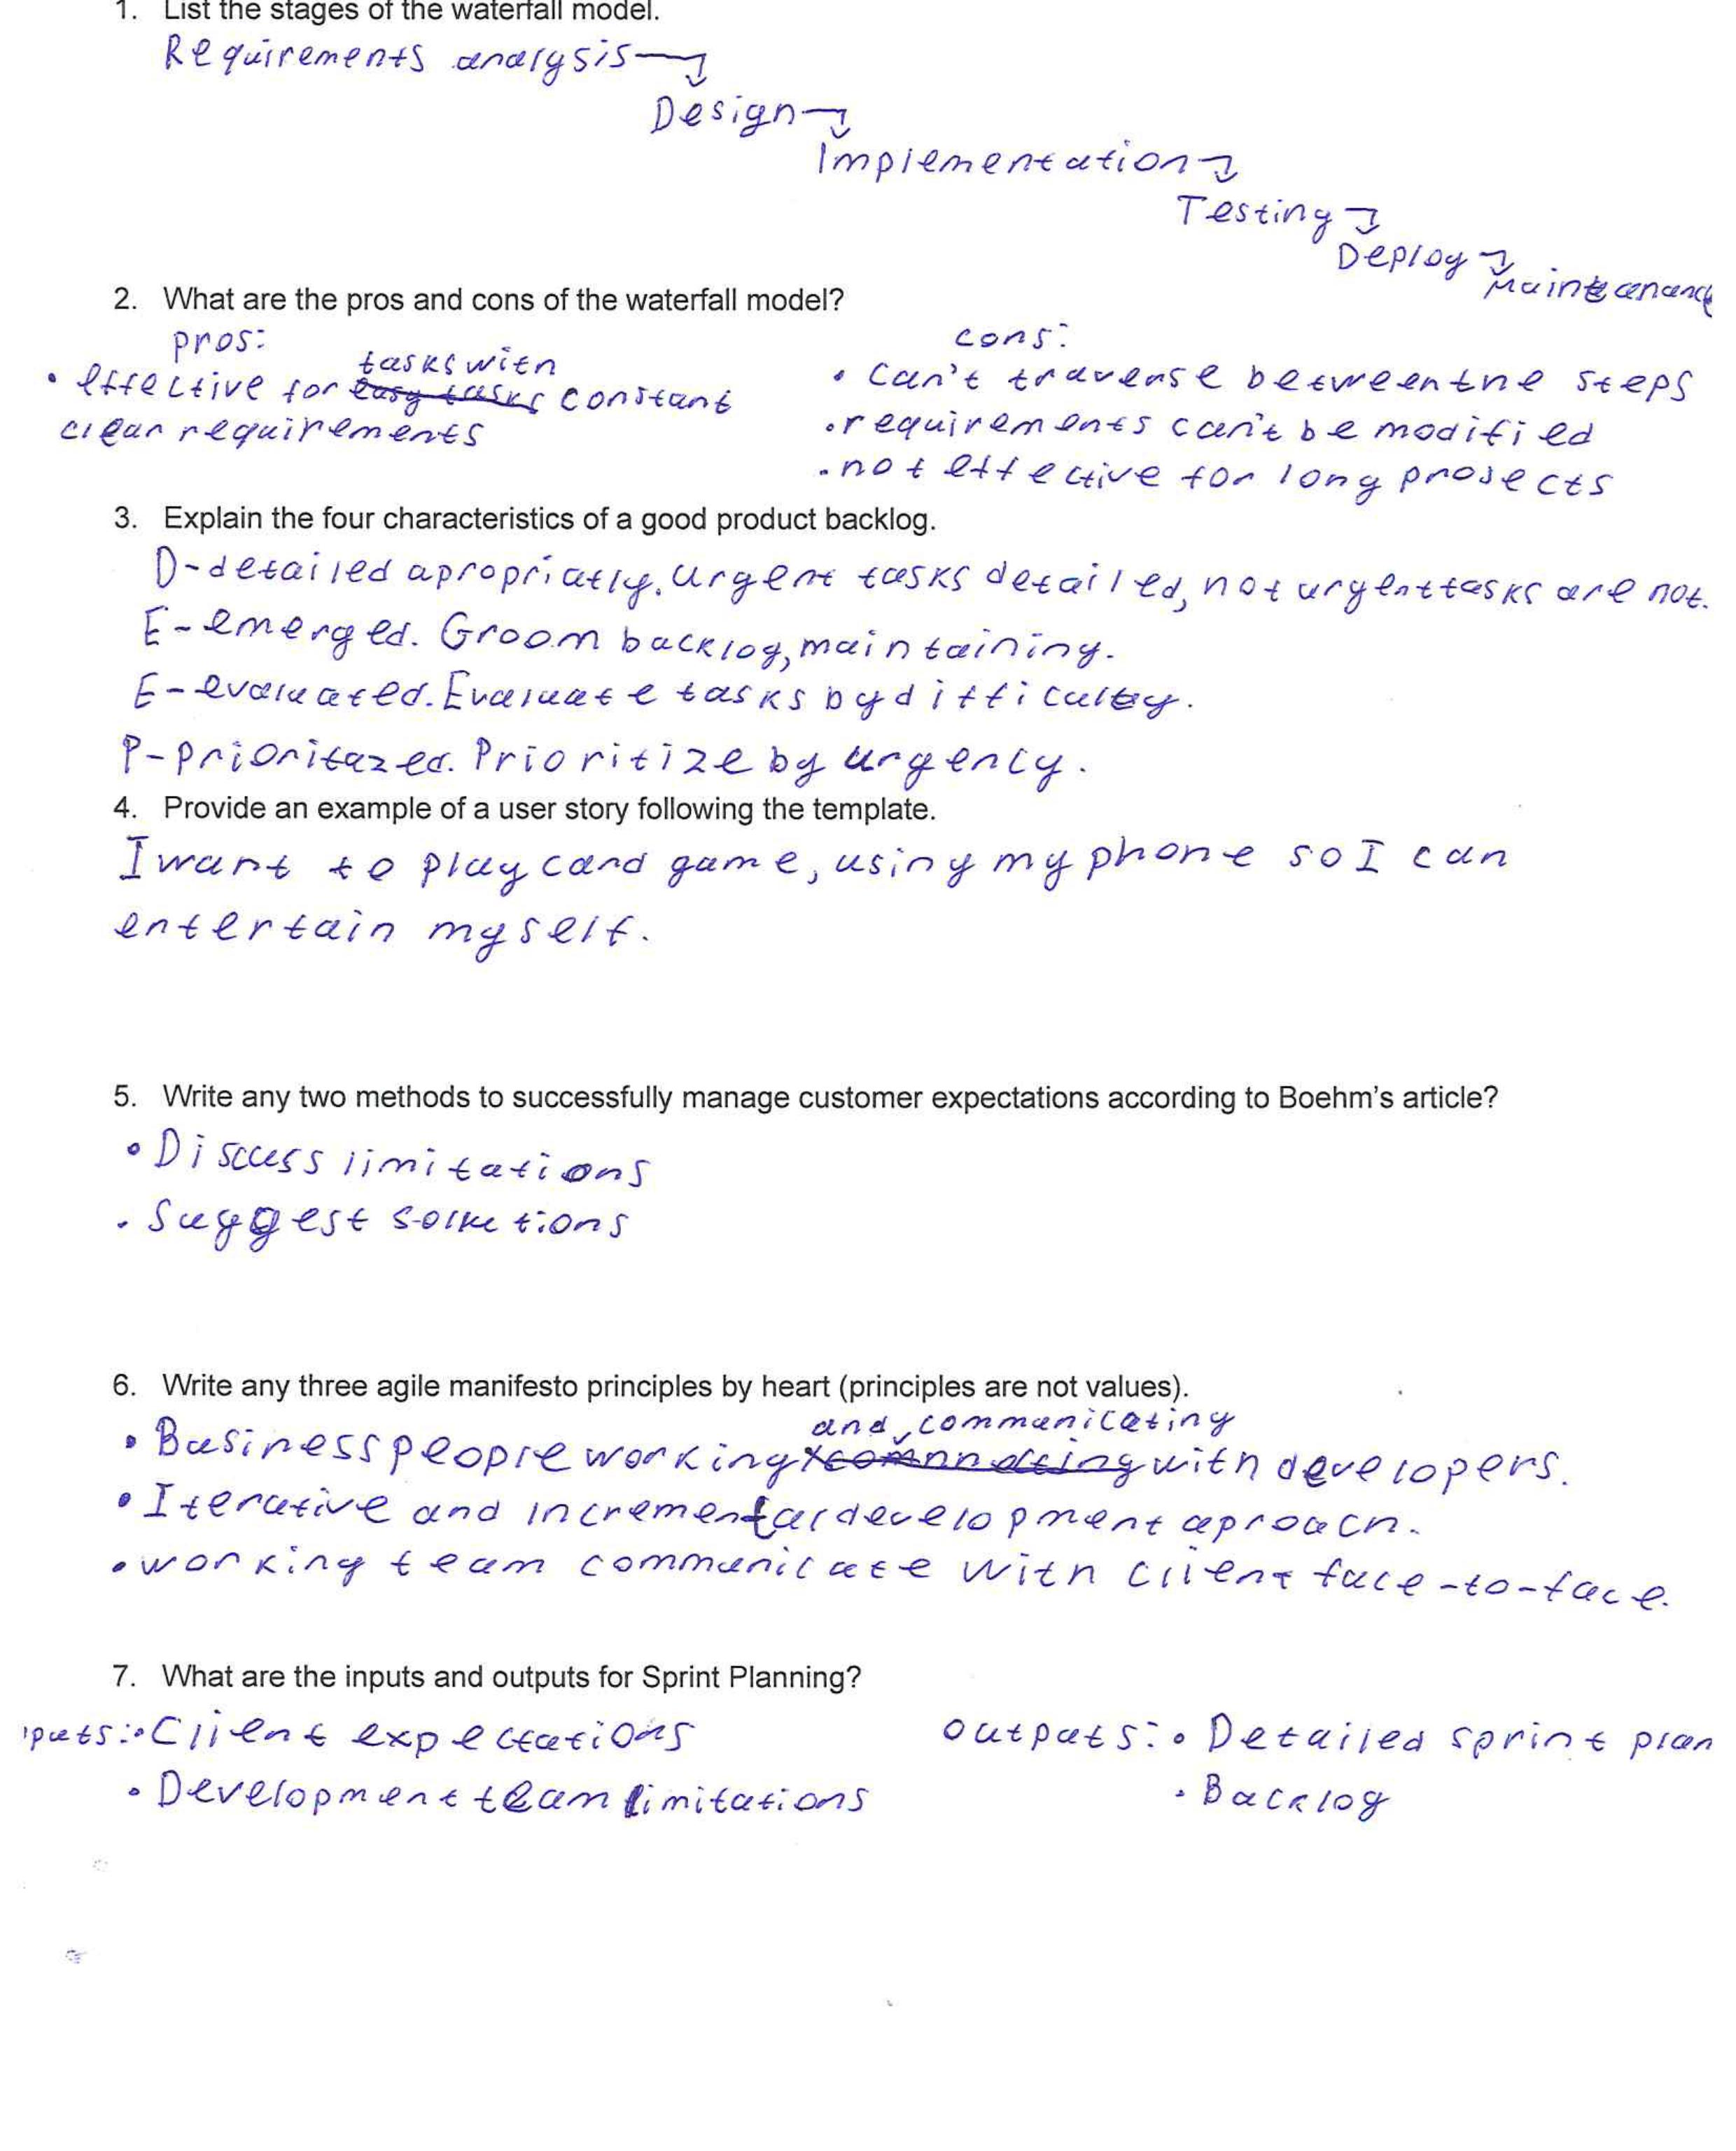 1. List the stages of the waterfall model.
Requirements analysis
Design
Implementation
Testing
Deploy
Mainteanance
2. What are the pros and cons of the waterfall model?
pros:
• effective for easy tasks tasks with constant
clear requirements
cons:
• can't traverse between the steps
• requirements can't be modified
• not effective for long projects
3. Explain the four characteristics of a good product backlog.
D-detailed apropriatly. Urgent tasks detailed, not urgent tasks are not.
E-emerged. Groom backlog, maintaining.
E-evaluated. Evaluate tasks by difficulty.
P-prioritazed. Prioritize by urgency.
4. Provide an example of a user story following the template.
I want to play card game, using my phone so I can
entertain myself.
5. Write any two methods to successfully manage customer expectations according to Boehm's article?
• Discuss limitations
• Suggest solutions
6. Write any three agile manifesto principles by heart (principles are not values).
• Business people working and communicating with developers.
• Iterative and incremental development aproach.
• working team communicate with client face-to-face.
7. What are the inputs and outputs for Sprint Planning?
iputs: • Client expectations
• Development team limitations
outputs: • Detailed sprint plan
• Backlog